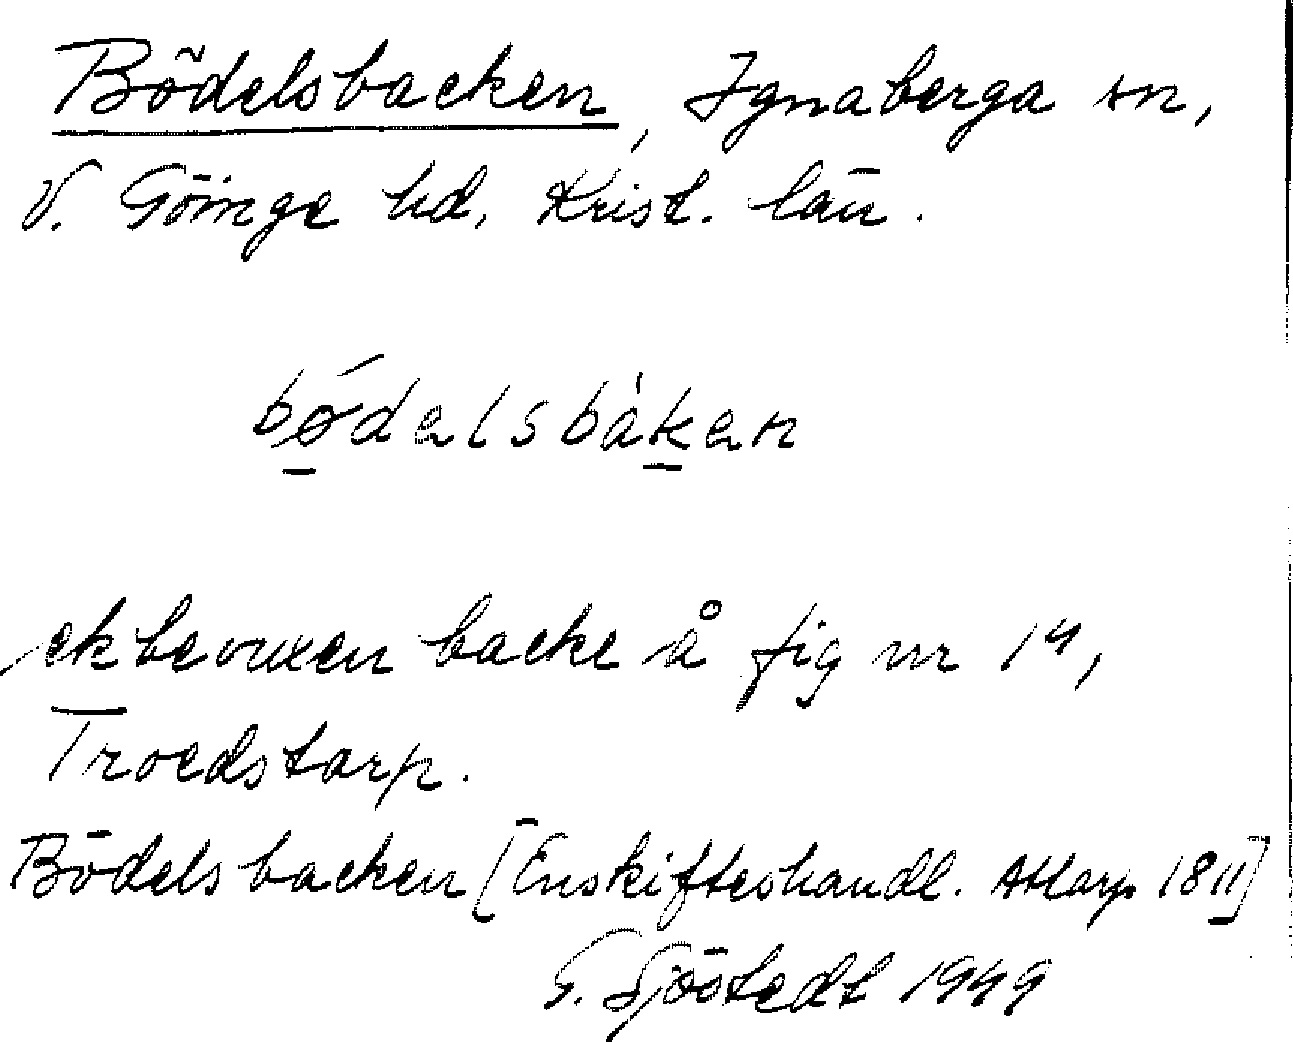 Bödelsbacken, Ignaberga sn,
V. Göinge hd, Krist. län.
bǿdelsbàken
ekbevuxen backe å fig nr 14,
Troedstorp.
Bödelsbacken [Enskifteshandl. Attarp 1811]
G. Sjöstedt 1949